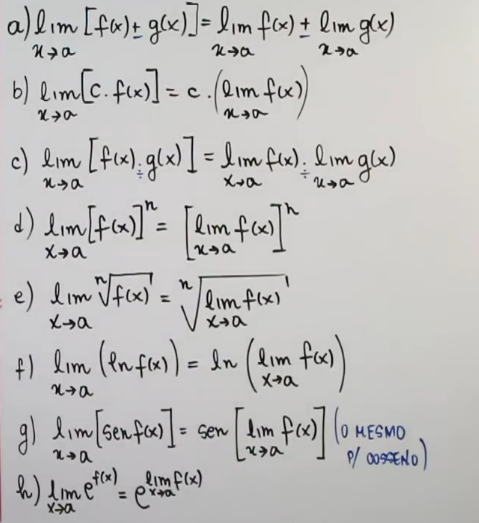 a) lim x→a [f(x) ± g(x)] = lim x→a f(x) ± lim x→a g(x)
b) lim x→a [c . f(x)] = c . (lim x→a f(x))
c) lim x→a [f(x) . ÷ g(x)] = lim x→a f(x) . ÷ lim x→a g(x)
d) lim x→a [f(x)]^n = [lim x→a f(x)]^n
e) lim x→a ⁿ√f(x) = ⁿ√lim x→a f(x)
f) lim x→a (ln f(x)) = ln (lim x→a f(x))
g) lim x→a [sen f(x)] = sen [lim x→a f(x)] (O MESMO
P/ COSSENO)
h) lim x→a e^f(x) = e^lim x→a f(x)